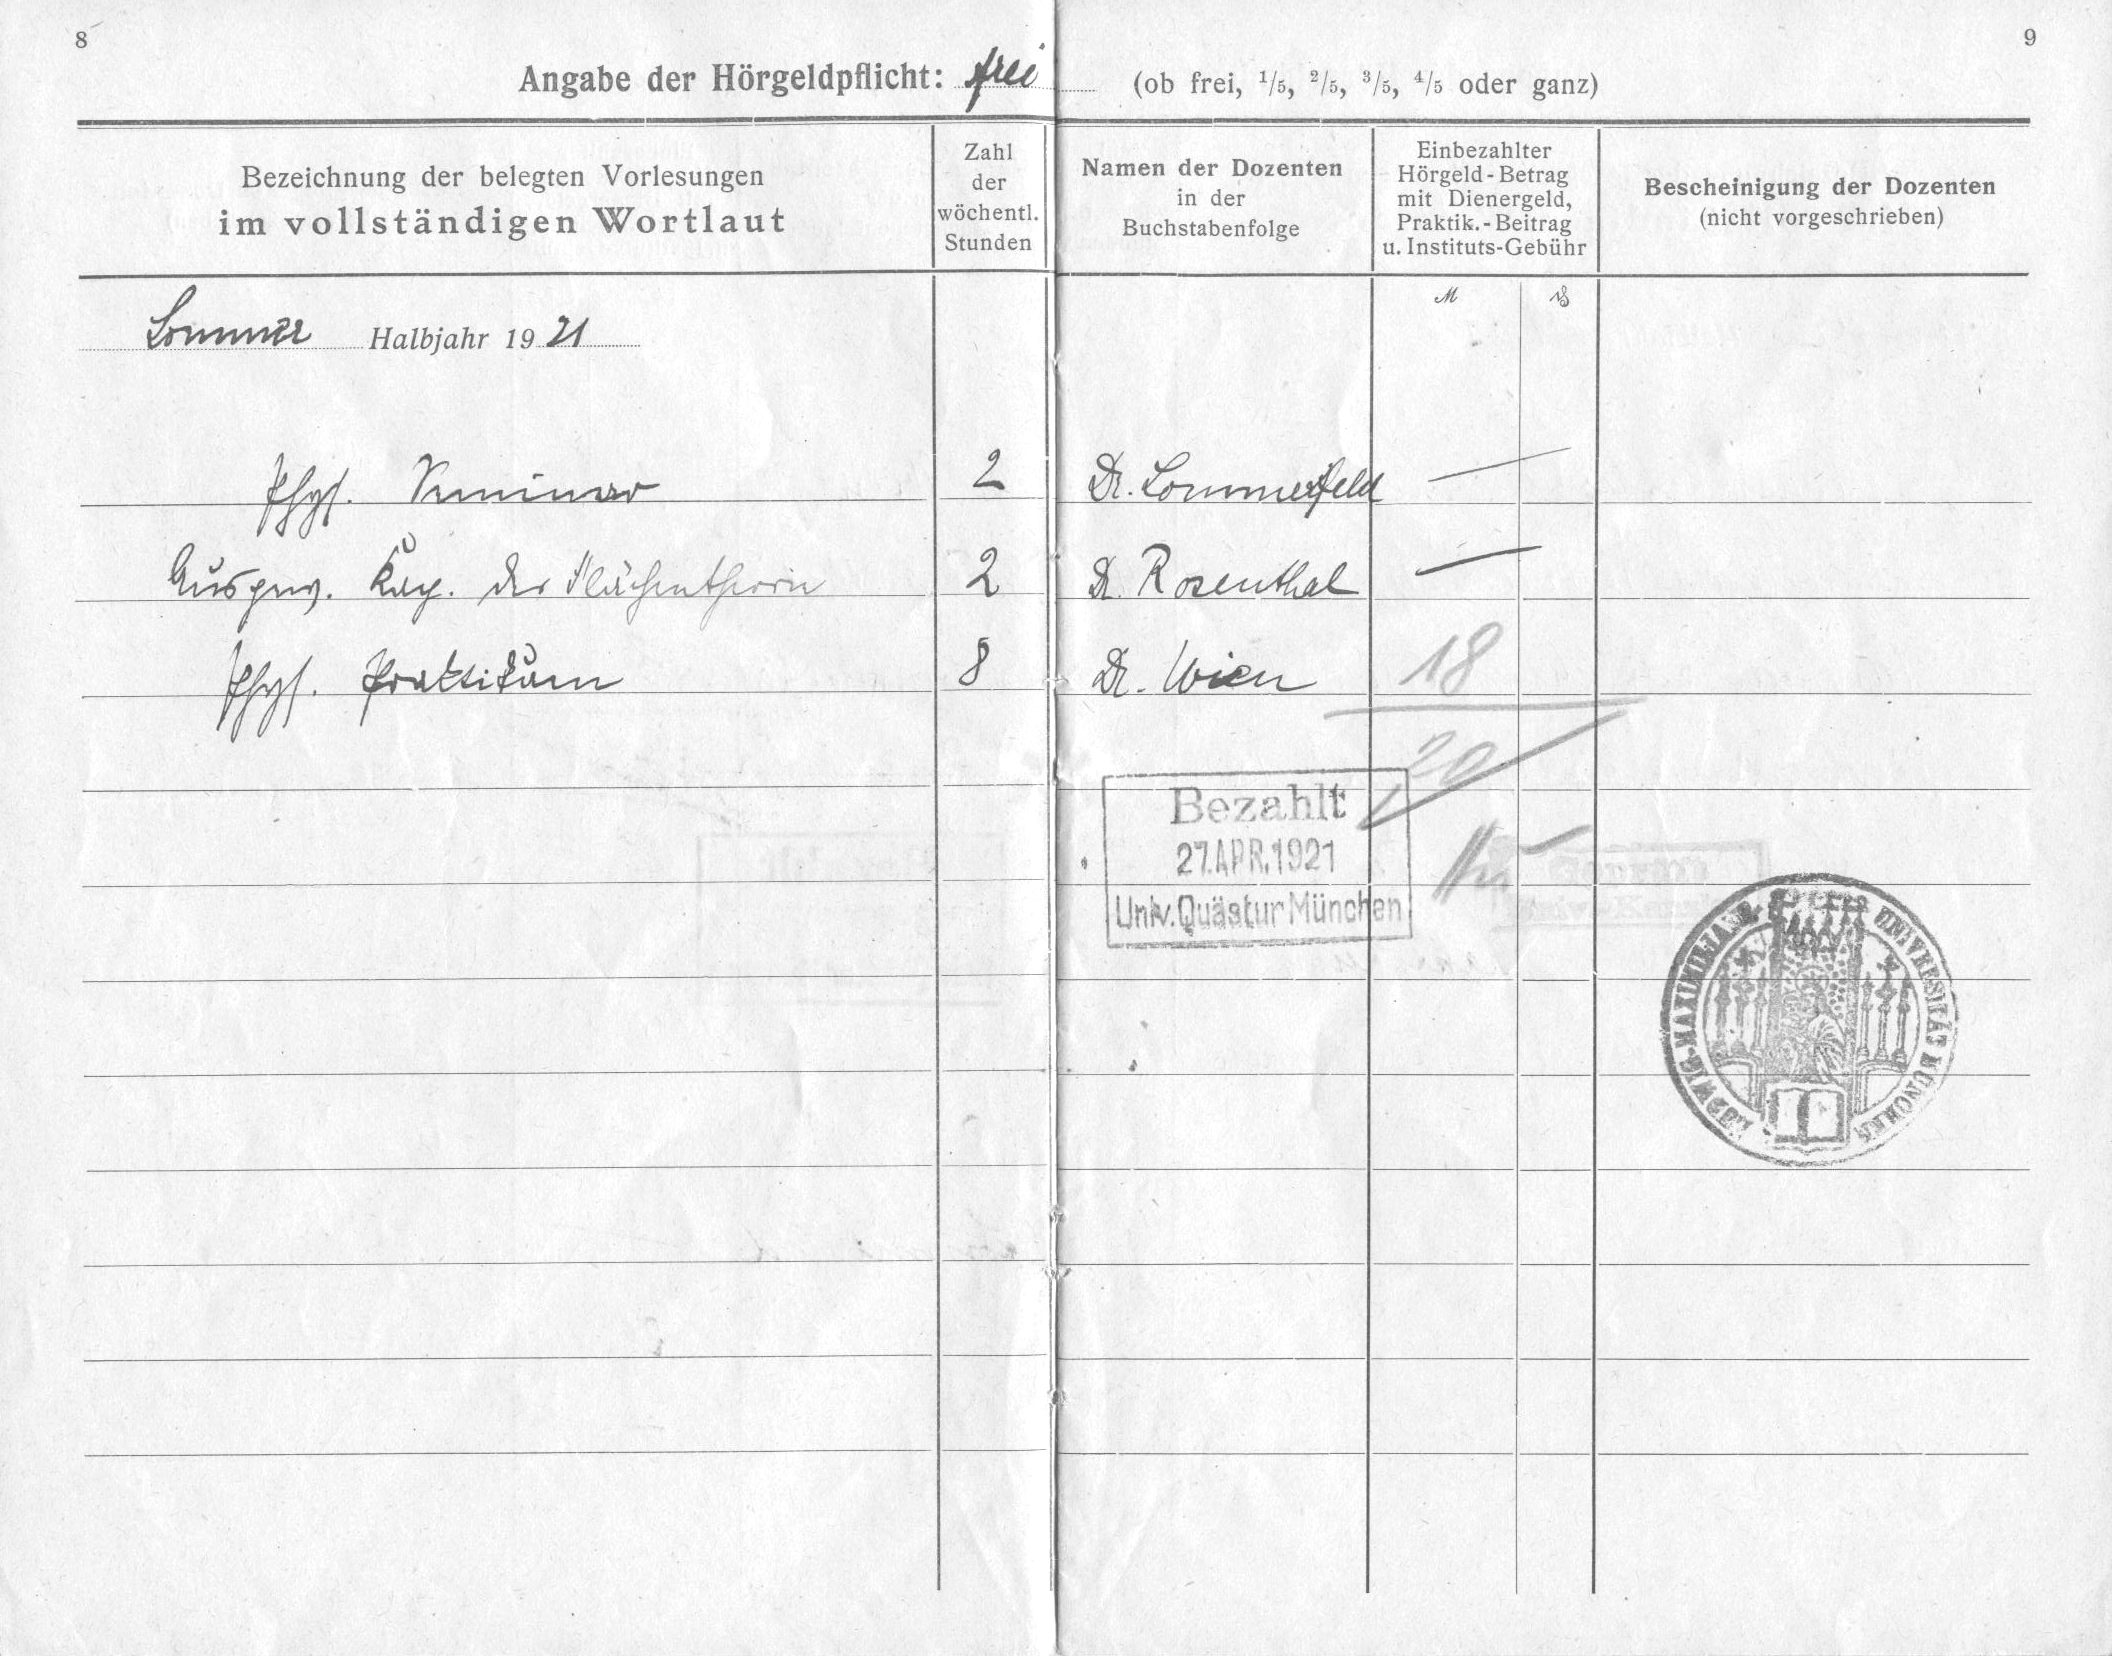 8
9
Angabe der Hörgeldpflicht: frei (ob frei, 1/5, 2/5, 3/5, 4/5 oder ganz)
Bezeichnung der belegten Vorlesungen
im vollständigen Wortlaut
Zahl
der
wöchentl.
Stunden
Namen der Dozenten
in der
Buchstabenfolge
Einbezahlter
Hörgeld-Betrag
mit Dienergeld,
Praktik.-Beitrag
u. Instituts-Gebühr
Bescheinigung der Dozenten
(nicht vorgeschrieben)
M ₰
Sommer Halbjahr 1921
Phys. Seminar 2 Dr. Sommerfeld —
Ausgew. Kap. der Flächentheorie 2 Dr. Rosenthal —
Phys. Praktikum 8 Dr. Wien 18
20
Bezahlt
27.APR.1921
Univ. Quästur München
LUDWIG-MAXIMILIANS- UNIVERSITÄT MÜNCHEN